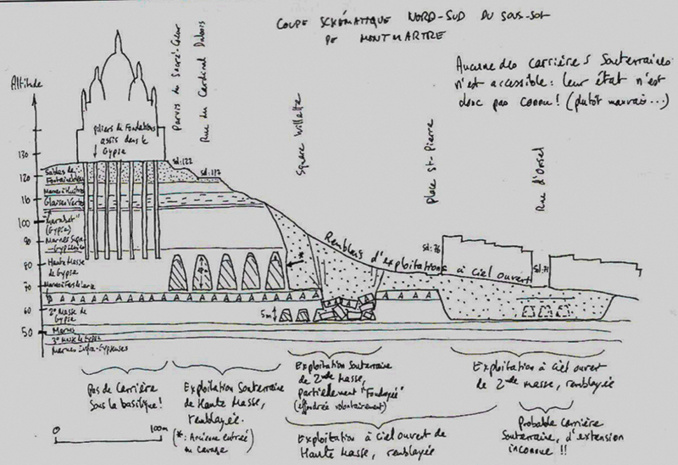 COUPE SCHÉMATIQUE NORD-SUD DU SOUS-SOL
DE MONTMARTRE
Aucune des carrières souterraines
n'est accessible : leur état n'est
donc pas connu ! (plutôt mauvais...)
Altitude
Parvis du Sacré-Cœur
Rue du Cardinal Dubois
Square Willette
Place St-Pierre
Rue d'Orsel
piliers de fondations
assis dans le
Gypse
sol: 122
sol: 112
sol: 76
130
120
110
100
90
80
70
60
50
Sables de
Fontainebleau
Glaises vertes
(Gypse)
Haute Masse
de Gypse
2e Masse de
Gypse
Marnes
3e Masse de Gypse
Marnes infra-gypseuses
Remblais d'exploitations à ciel ouvert
*
5m
Pas de carrière
sous la basilique !
0 100m
Exploitation souterraine
de Haute Masse,
remblayée.
(* : Ancienne entrée)
en cavage
Exploitation souterraine
de 2nde masse,
partiellement "foudroyée"
(effondrée volontairement)
Exploitation à ciel ouvert de
Haute Masse, remblayée
Exploitation à ciel ouvert
de 2nde masse, remblayée
Probable carrière
souterraine, d'extension
inconnue !!